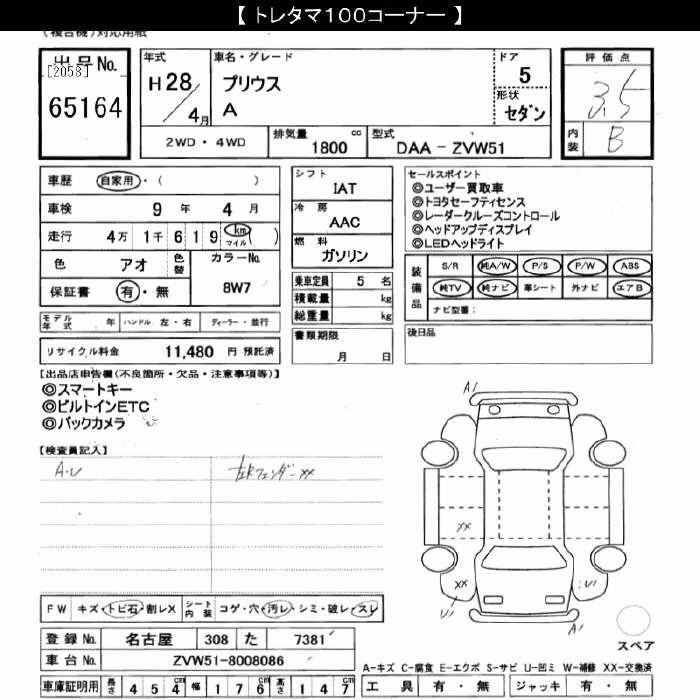 【 トレタマ100コーナー 】
(複合機)対応用紙
出品No.
[2058]
65164
年式
H28/4月
車名・グレード
プリウス
A
ドア
5
形状
セダン
2WD・4WD
排気量 cc
1800
型式
DAA-ZVW51
評価点
3.5
内装
B
車歴 自家用・( )
車検 9年 4月
走行 4万 1千 6 1 9 km マイル ( )
色 アオ 色替 カラーNo.
保証書 有・無 8W7
シフト
IAT
冷房
AAC
燃料
ガソリン
乗車定員 5 名
積載量 kg
総重量 kg
セールスポイント
◎ユーザー買取車
◎トヨタセーフティセンス
◎レーダークルーズコントロール
◎ヘッドアップディスプレイ
◎LEDヘッドライト
装備品
S/R 純A/W P/S P/W ABS
純TV 純ナビ 革シート 外ナビ エアB
ナビ型番:
モデル年式 年 ハンドル 左・右 ディーラー・並行
書類期限
月 日
後日品
リサイクル料金 11,480 円 預託済
【出品店申告欄(不良箇所・欠品・注意事項等)】
◎スマートキー
◎ビルトインETC
◎バックカメラ
【検査員記入】
A・U
左Rフェンダー XX
A1
XX
XX
U1
U1
A1
スペア
FW キズ・トビ石・割レX シート内装 コゲ・穴・汚レ・シミ・破レ・スレ
登録No. 名古屋 308 た 7381
車台No. ZVW51-8008086
A-キズ C-腐食 E-エクボ S-サビ U-凹ミ W-補修 XX-交換済
車庫証明用 長さ 4 5 4 cm 幅 1 7 6 cm 高さ 1 4 7 cm
工具 有・無 ジャッキ 有・無